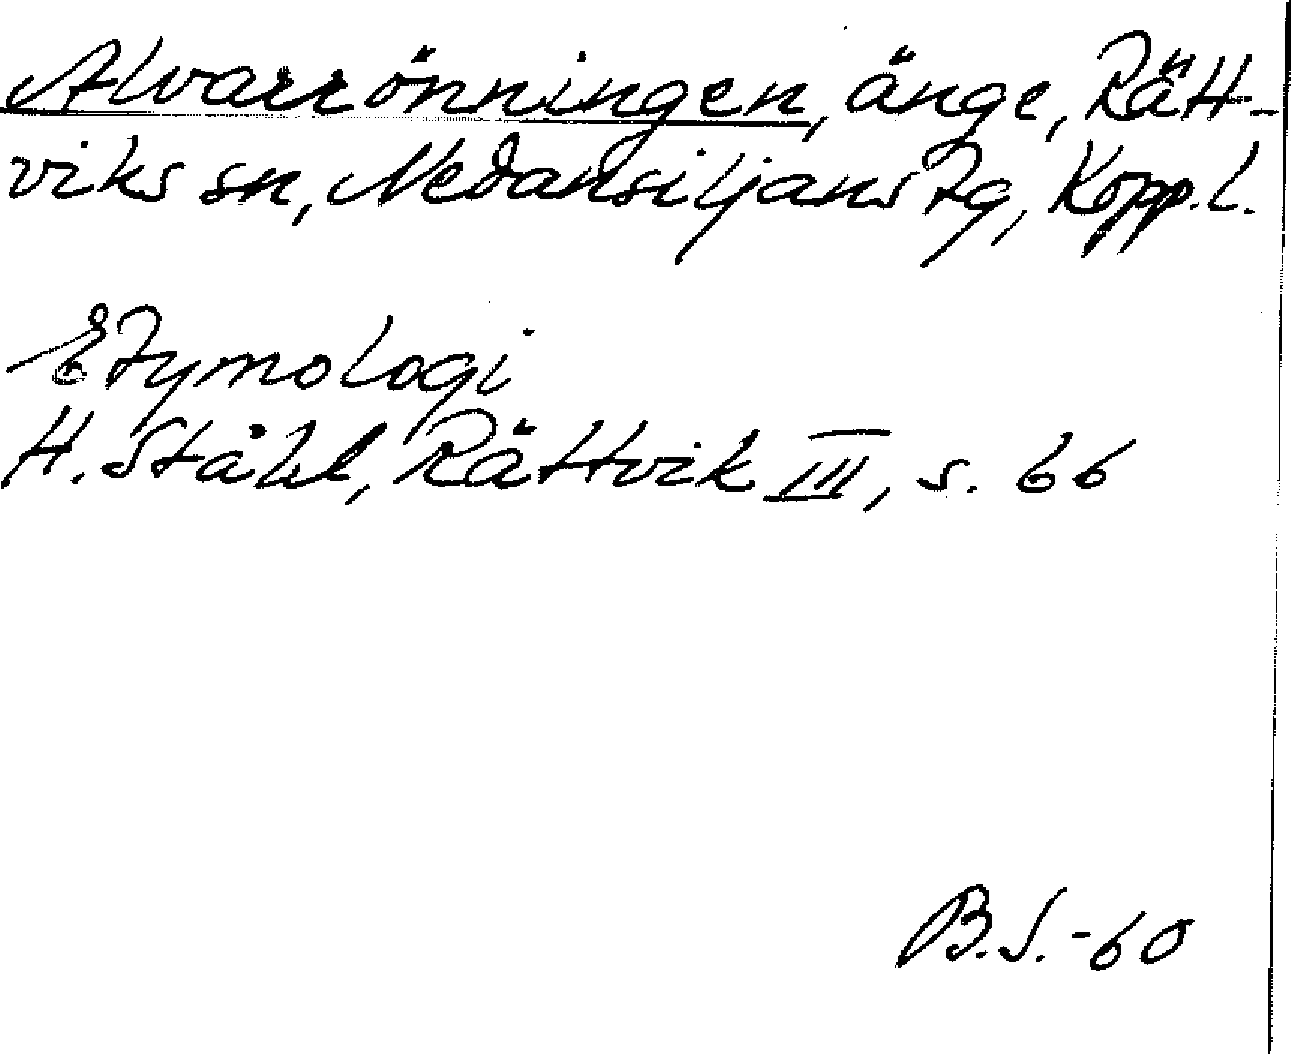 Alvarrönningen, änge, Rätt-
viks sn, Nedansiljans tg, Kopp. l.
Etymologi
H. Ståhl, Rättvik III, s. 66
B.S.-60